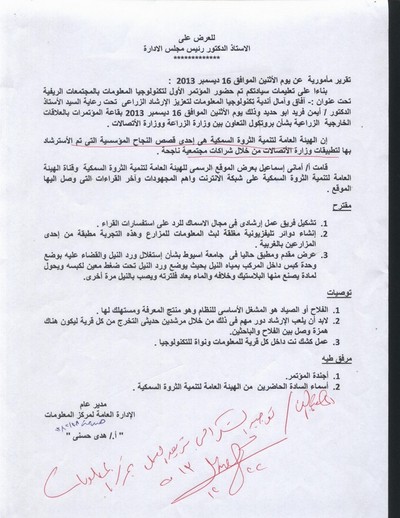 للعرض على
الاستاذ الدكتور رئيس مجلس الادارة
*************
تقرير مأمورية عن يوم الأثنين الموافق 16 ديسمبر 2013
بناءا على تعليمات سيادتكم تم حضور المؤتمر الأول لتكنولوجيا المعلومات بالمجتمعات الريفية
تحت عنوان :- آفاق وآمال أندية تكنولوجيا المعلومات لتعزيز الإرشاد الزراعى تحت رعاية السيد الأستاذ
الدكتور / أيمن فريد ابو حديد وذلك يوم الأثنين الموافق 16 ديسمبر 2013 بقاعة المؤتمرات بالعلاقات
الخارجية الزراعية بشأن بروتكول التعاون بين وزارة الزراعة ووزارة الأتصالات .
إن الهيئة العامة لتنمية الثروة السمكية هى إحدى قصص النجاح المؤسسية التى تم الأسترشاد
بها لتطبيقات وزارة الأتصالات من خلال شراكات مجتمعية ناجحة
قامت أ/ أمانى إسماعيل بعرض الموقع الرسمى للهيئة العامة لتنمية الثروة السمكية وقناة الهيئة
العامة لتنمية الثروة السمكية على شبكة الانترنت وأهم المجهودات وآخر القراءات التى وصل اليها
الموقع .
مقترح
1. تشكيل فريق عمل إرشادى فى مجال الاسماك للرد على أستفسارات القراء .
2. إنشاء دوائر تليفزيونية مغلقة لبث المعلومات للمزارع وهذه التجربة مطبقة من إحدى
المزارعين بالغربية .
3. عرض مقدم ومطبق حاليا فى جامعة اسيوط بشأن إستغلال ورد النيل والقضاء عليه بوضع
وحدة كبس داخل المركب بمياه النيل بحيث يوضع ورد النيل تحت ضغط معين لكبسه ويحول
لمادة يصنع منها البلاستيك وخلافه والماء يعاد فلترته ويصب بالنيل مرة أخرى.
توصيات
1. الفلاح أو الصياد هو المشغل الأساسى للنظام وهو منتج المعرفة ومستهلك لها .
2. لابد أن يلعب الإرشاد دور مهم فى ذلك من خلال مرشدين حديثى التخرج من كل قرية ليكون هناك
همزة وصل بين الفلاح والباحثين.
3. عمل كشك نت داخل كل قرية للمعلومات ونواة للتكنولوجيا .
مرفق طيه
1. أجندة المؤتمر.
2. أسماء السادة الحاضرين من الهيئة العامة لتنمية الثروة السمكية .
مدير عام
الإدارة العامة لمركز المعلومات
" أ/ هدى حسنى "